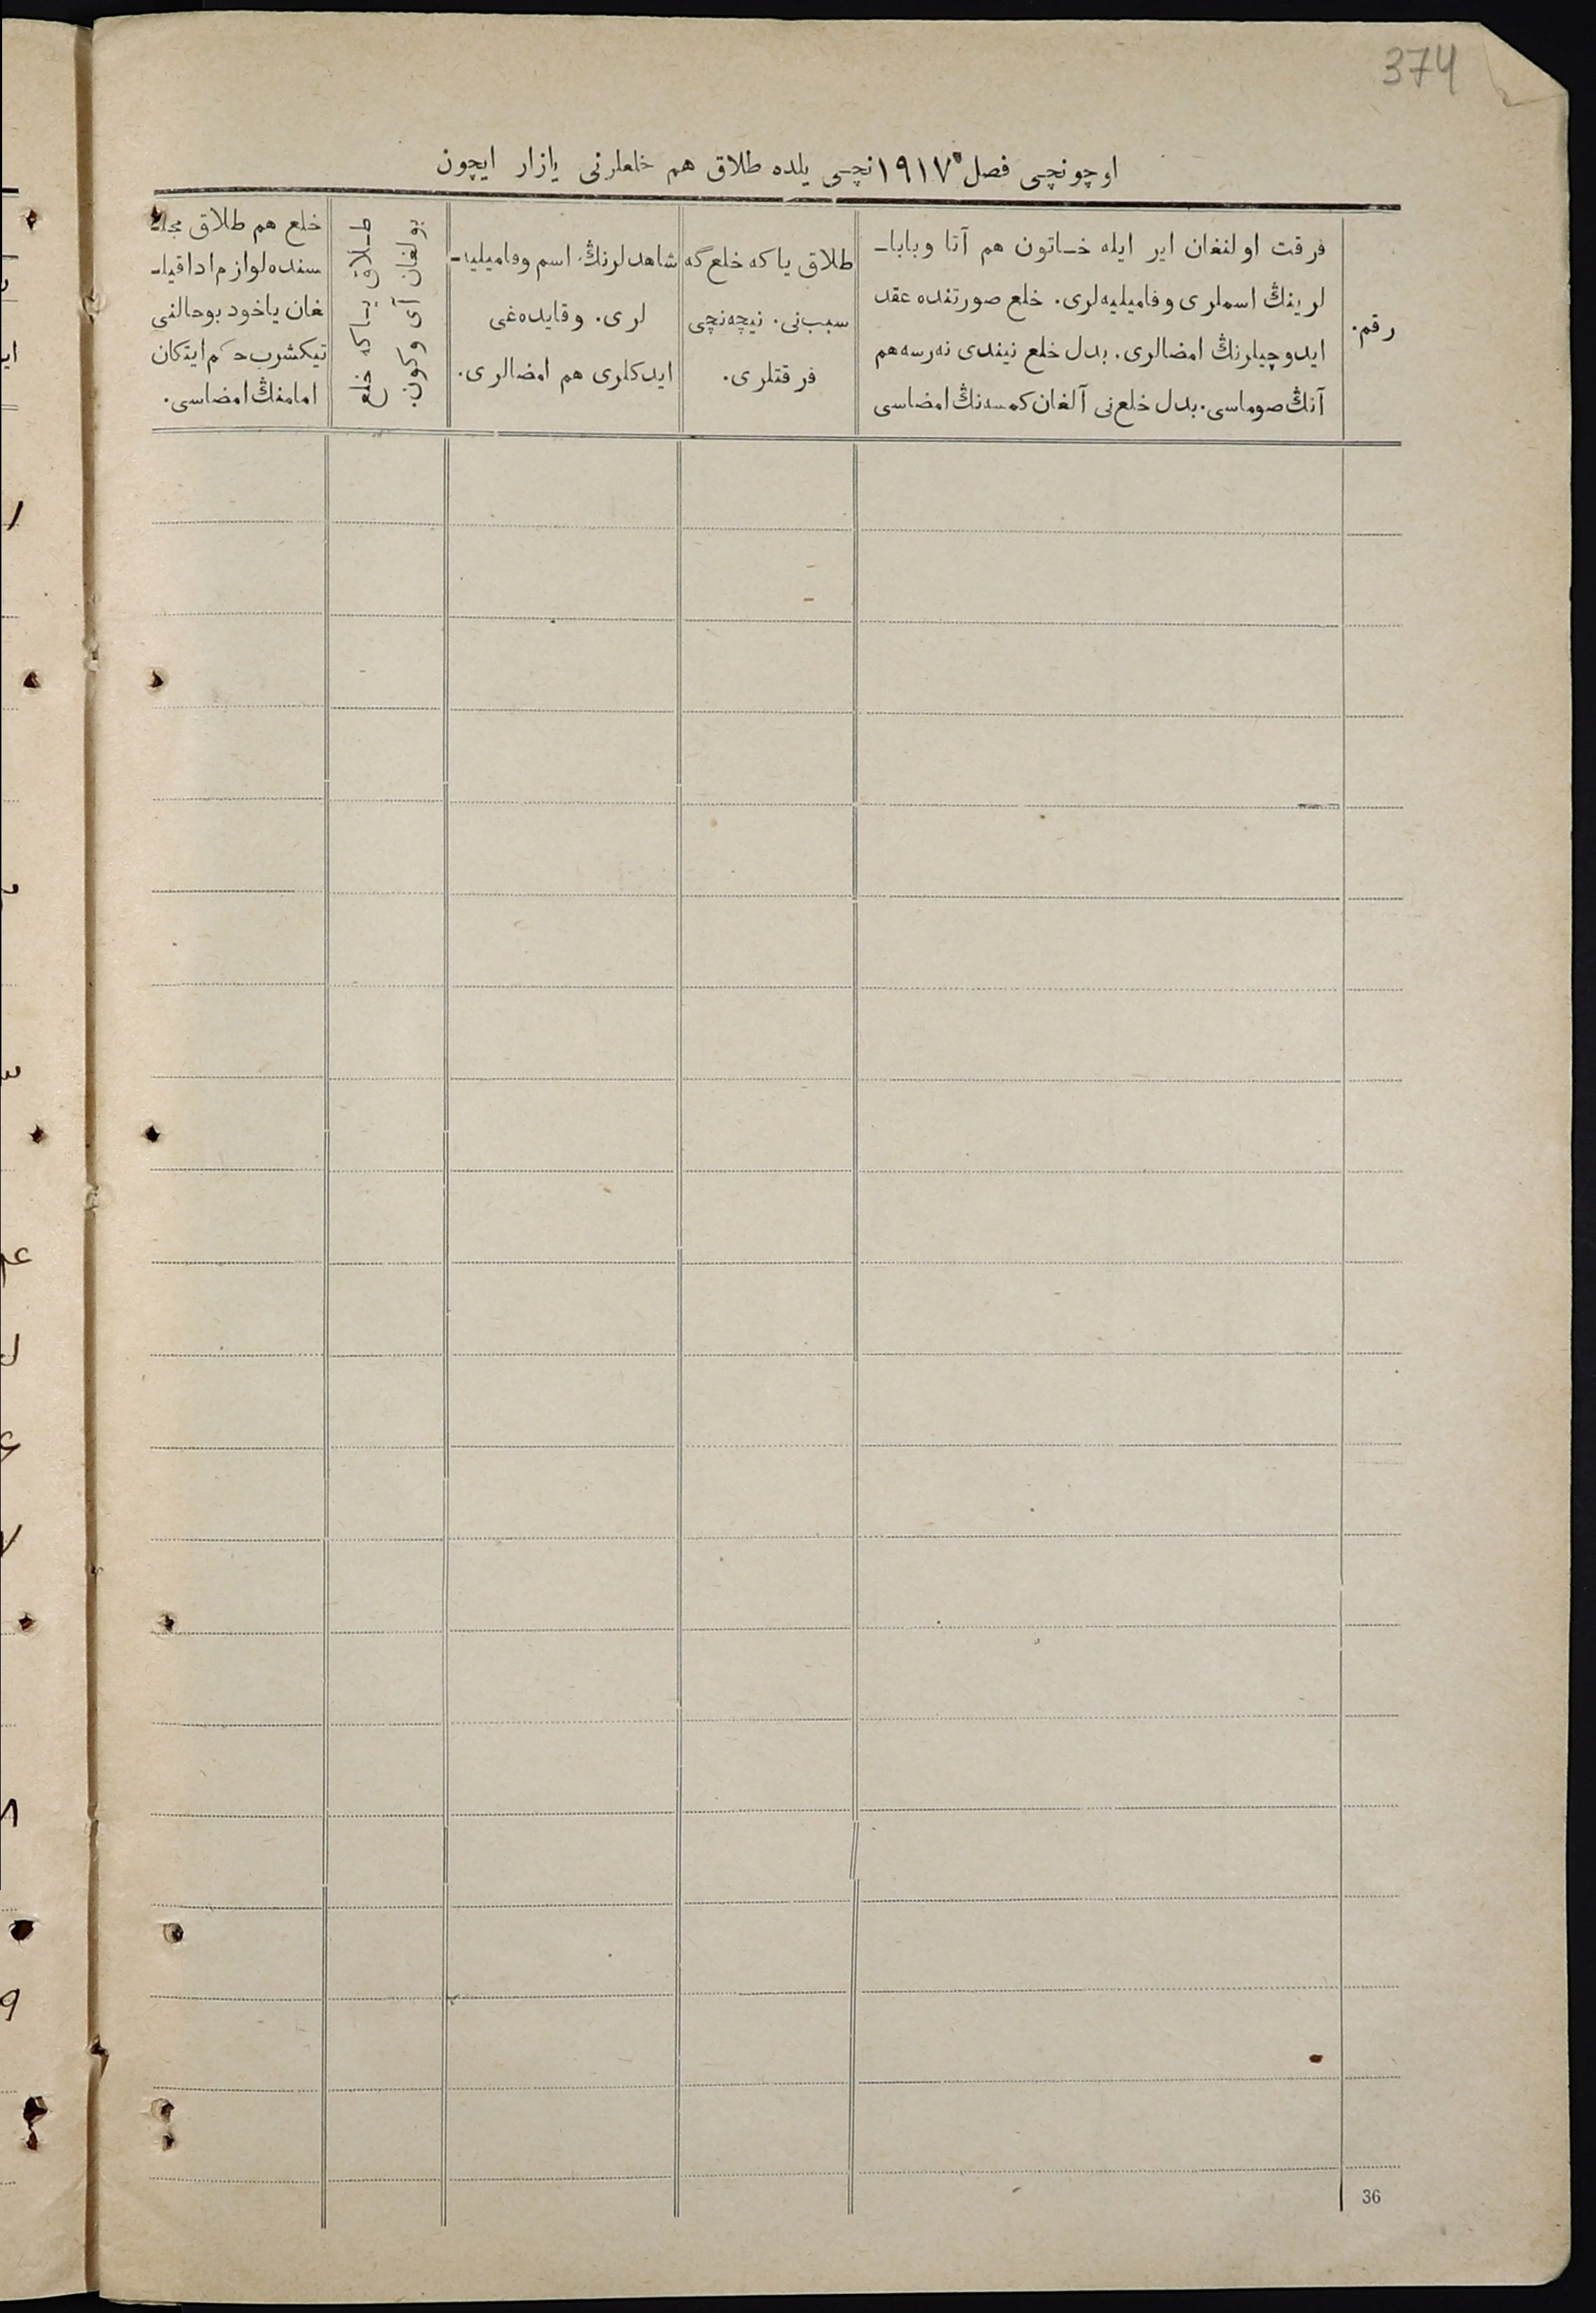 374
اوچونچی فصل ١٩١٧نچی یلده طلاق هم خلعلرنی یازار ایچون
رقم.
فرقت اولنغان ایر ایله خـاتون هم آتا وبابا-
لرینڭ اسملری وفامیلیه‌لری. خلع صورتنده عقد
ایدوچیلرنڭ امضالری. بدل خلع نیندی نه‌رسه هم
آنڭ صوماسی. بدل خلع‌نی آلغان کمسه‌نڭ امضاسی
طلاق یاکه خلع‌گه
سبب‌نی. نیچه‌نچی
فرقتلری.
شاهدلرنڭ اسم وفامیلیه-
لری. وقایده‌غی
ایدکلری هم امضالری.
طـلاق یـاکه خلع
بولغان آی وکون.
خلع هم طلاق مجلـ
سنده لوازم ادا قیلـ
غان یاخود بوحالنی
تیکشرب حکم ایتکان
امامنڭ امضاسی.
36